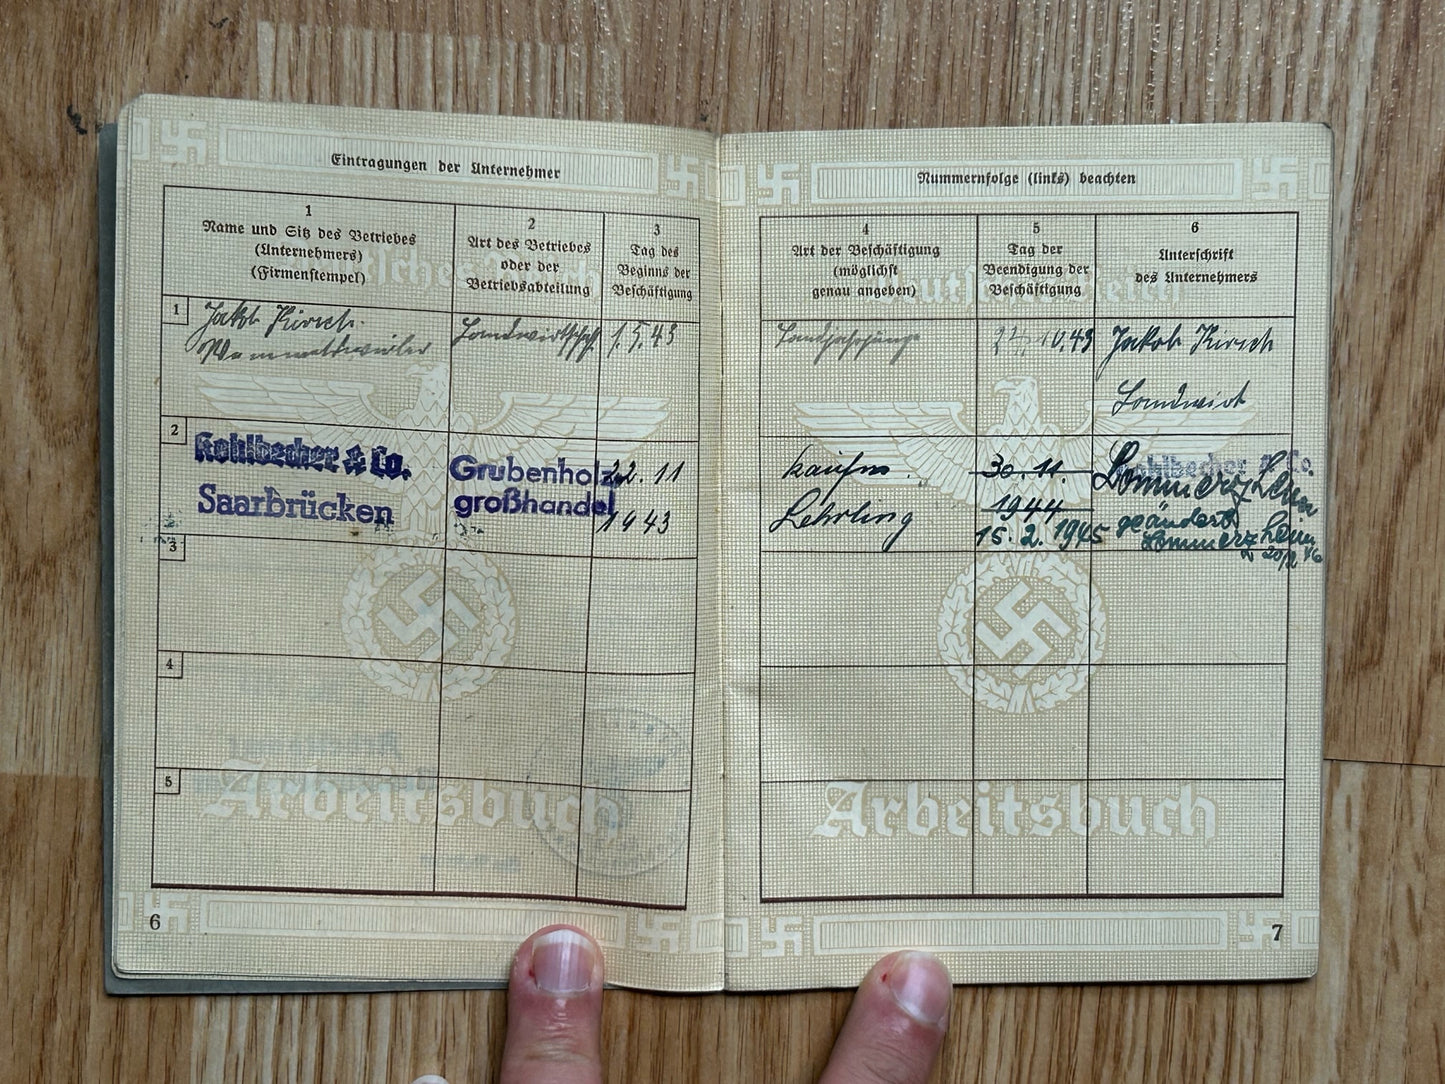 Eintragungen der Unternehmer
1
Name und Sitz des Betriebes
(Unternehmers)
(Firmenstempel)
2
Art des Betriebes
oder der
Betriebsabteilung
3
Tag des
Beginns der
Beschäftigung
1
Jakob Kirsch
Landwirtschaft
1.5.43
2
Kohlbecher & Co.
Saarbrücken
Grubenholz
großhandel
22.11
1943
3
4
5
Arbeitsbuch
6
Nummernfolge (links) beachten
4
Art der Beschäftigung
(möglichst
genau angeben)
5
Tag der
Beendigung der
Beschäftigung
6
Unterschrift
des Unternehmers
Landjahrjunge
10.43
Jakob Kirsch
Landwirt
kaufm.
Lehrling
30.11.
1944
15.2.1945
Kohlbecher & Co.
geändert
Arbeitsbuch
7